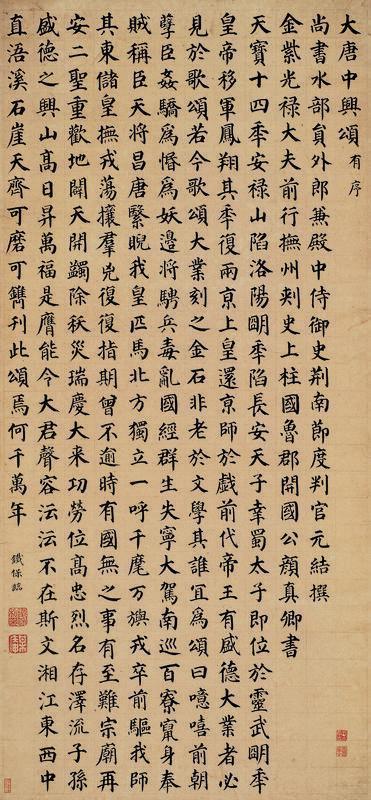 大唐中興頌有序
尚書水部員外郎兼殿中侍御史荆南節度判官元結撰
金紫光祿大夫前行撫州刾史上柱國魯郡開國公顏真卿書
天寶十四秊安祿山陷洛陽眀秊陷長安天子幸蜀太子即位於靈武眀秊
皇帝移軍鳳翔其秊復兩京上皇還京師於戲前代帝王有盛德大業者必
見於歌頌若今歌頌大業刻之金石非老於文學其誰宜為頌曰噫嘻前朝
孽臣姦驕為惛為妖邊將騁兵毒亂國經群生失寧大駕南巡百寮竄身奉
賊稱臣天將昌唐繄睨我皇匹馬北方獨立一呼千麾万旟戎卒前驅我師
其東儲皇撫戎蕩攘羣兇復復指期曾不逾時有國無之事有至難宗廟再
安二聖重歡地闢天開蠲除祅災瑞慶大来功勞位髙忠烈名存澤流子孫
盛德之興山髙日昇萬福是膺能令大君聲容沄沄不在斯文湘江東西中
直浯溪石崖天齊可磨可鐫刊此頌焉何千萬年
鐵保臨